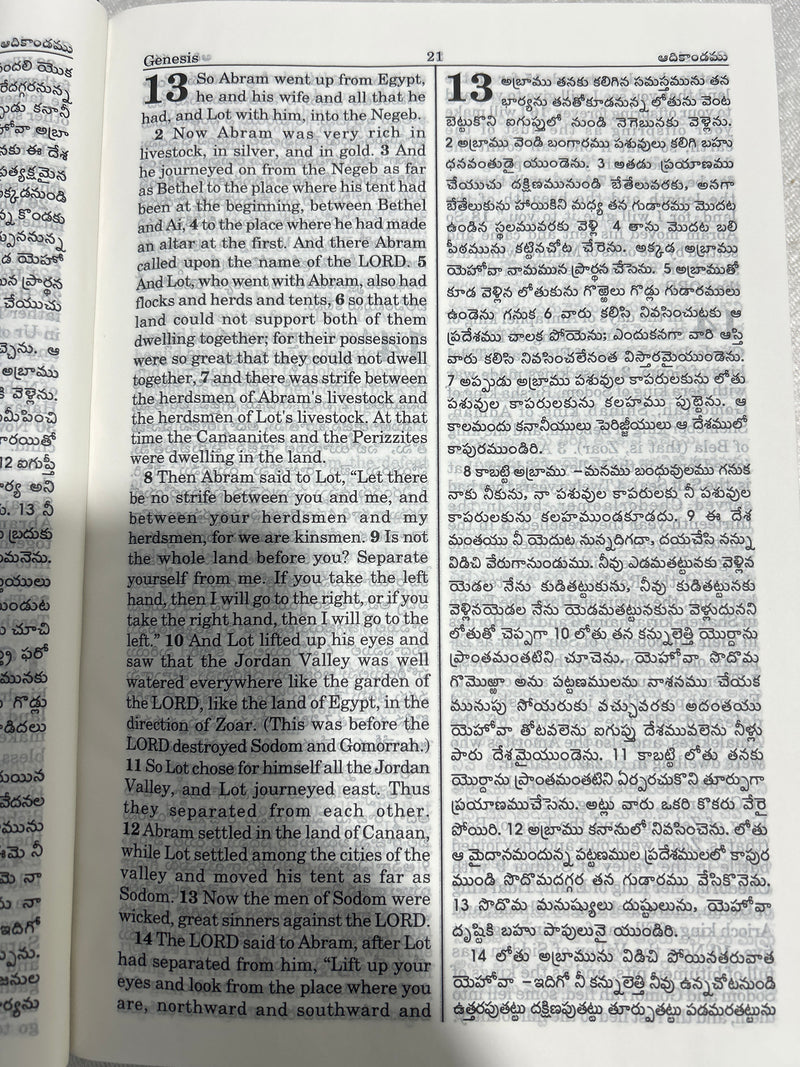 Genesis
21
ఆదికాండము
13 So Abram went up from Egypt,
he and his wife and all that he
had, and Lot with him, into the Negeb.
2 Now Abram was very rich in
livestock, in silver, and in gold. 3 And
he journeyed on from the Negeb as far
as Bethel to the place where his tent had
been at the beginning, between Bethel
and Ai, 4 to the place where he had made
an altar at the first. And there Abram
called upon the name of the LORD. 5
And Lot, who went with Abram, also had
flocks and herds and tents, 6 so that the
land could not support both of them
dwelling together; for their possessions
were so great that they could not dwell
together, 7 and there was strife between
the herdsmen of Abram's livestock and
the herdsmen of Lot's livestock. At that
time the Canaanites and the Perizzites
were dwelling in the land.
8 Then Abram said to Lot, “Let there
be no strife between you and me, and
between your herdsmen and my
herdsmen, for we are kinsmen. 9 Is not
the whole land before you? Separate
yourself from me. If you take the left
hand, then I will go to the right, or if you
take the right hand, then I will go to the
left.” 10 And Lot lifted up his eyes and
saw that the Jordan Valley was well
watered everywhere like the garden of
the LORD, like the land of Egypt, in the
direction of Zoar. (This was before the
LORD destroyed Sodom and Gomorrah.)
11 So Lot chose for himself all the Jordan
Valley, and Lot journeyed east. Thus
they separated from each other.
12 Abram settled in the land of Canaan,
while Lot settled among the cities of the
valley and moved his tent as far as
Sodom. 13 Now the men of Sodom were
wicked, great sinners against the LORD.
14 The LORD said to Abram, after Lot
had separated from him, “Lift up your
eyes and look from the place where you
are, northward and southward and
13 అబ్రాము తనకు కలిగిన సమస్తమును తన
భార్యను తనతోకూడనున్న లోతును వెంట
బెట్టుకొని ఐగుప్తులో నుండి నెగెబునకు వెళ్లెను.
2 అబ్రాము వెండి బంగారము పశువులు కలిగి బహు
ధనవంతుడై యుండెను. 3 అతడు ప్రయాణము
చేయుచు దక్షిణమునుండి బేతేలువరకు, అనగా
బేతేలుకును హాయికిని మధ్య తన గుడారము మొదట
ఉండిన స్థలమువరకు వెళ్లి 4 తాను మొదట బలి
పీఠమును కట్టినచోట చేరెను. అక్కడ అబ్రాము
యెహోవా నామమున ప్రార్థన చేసెను. 5 అబ్రాముతో
కూడ వెళ్లిన లోతుకును గొఱ్ఱెలు గొడ్లు గుడారములు
ఉండెను గనుక 6 వారు కలిసి నివసించుటకు ఆ
ప్రదేశము చాలక పోయెను; ఎందుకనగా వారి ఆస్తి
వారు కలిసి నివసించలేనంత విస్తారమైయుండెను.
7 అప్పుడు అబ్రాము పశువుల కాపరులకును లోతు
పశువుల కాపరులకును కలహము పుట్టెను. ఆ
కాలమందు కనానీయులు పెరిజ్జీయులు ఆ దేశములో
కాపురముండిరి.
8 కాబట్టి అబ్రాము –మనము బంధువులము గనుక
నాకు నీకును, నా పశువుల కాపరులకు నీ పశువుల
కాపరులకును కలహముండకూడదు. 9 ఈ దేశ
మంతయు నీ యెదుట నున్నదిగదా, దయచేసి నన్ను
విడిచి వేరుగానుండుము. నీవు ఎడమతట్టునకు వెళ్లిన
యెడల నేను కుడితట్టుకును, నీవు కుడితట్టునకు
వెళ్లినయెడల నేను యెడమతట్టునకును వెళ్లుదునని
లోతుతో చెప్పగా 10 లోతు తన కన్నులెత్తి యొర్దాను
ప్రాంతమంతటిని చూచెను. యెహోవా సొదొమ
గొమొఱ్ఱా అను పట్టణములను నాశనము చేయక
మునుపు సోయరుకు వచ్చువరకు అదంతయు
యెహోవా తోటవలెను ఐగుప్తు దేశమువలెను నీళ్లు
పారు దేశమైయుండెను. 11 కాబట్టి లోతు తనకు
యొర్దాను ప్రాంతమంతటిని ఏర్పరచుకొని తూర్పుగా
ప్రయాణముచేసెను. అట్లు వారు ఒకరి కొకరు వేరై
పోయిరి. 12 అబ్రాము కనానులో నివసించెను. లోతు
ఆ మైదానమందున్న పట్టణముల ప్రదేశములలో కాపుర
ముండి సొదొమదగ్గర తన గుడారము వేసికొనెను.
13 సొదొమ మనుష్యులు దుష్టులును, యెహోవా
దృష్టికి బహు పాపులునై యుండిరి.
14 లోతు అబ్రామును విడిచి పోయినతరువాత
యెహోవా –ఇదిగో నీ కన్నులెత్తి నీవు ఉన్నచోటనుండి
ఉత్తరపుతట్టు దక్షిణపుతట్టు తూర్పుతట్టు పడమరతట్టును